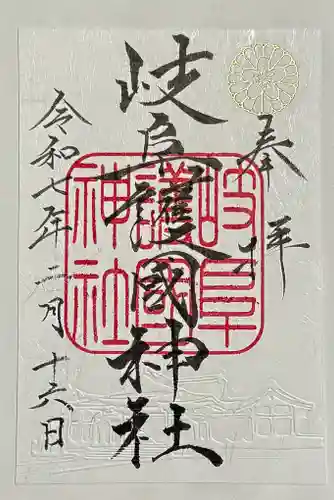 奉拝
岐阜護國神社
岐阜
護國
神社
令和七年二月十六日